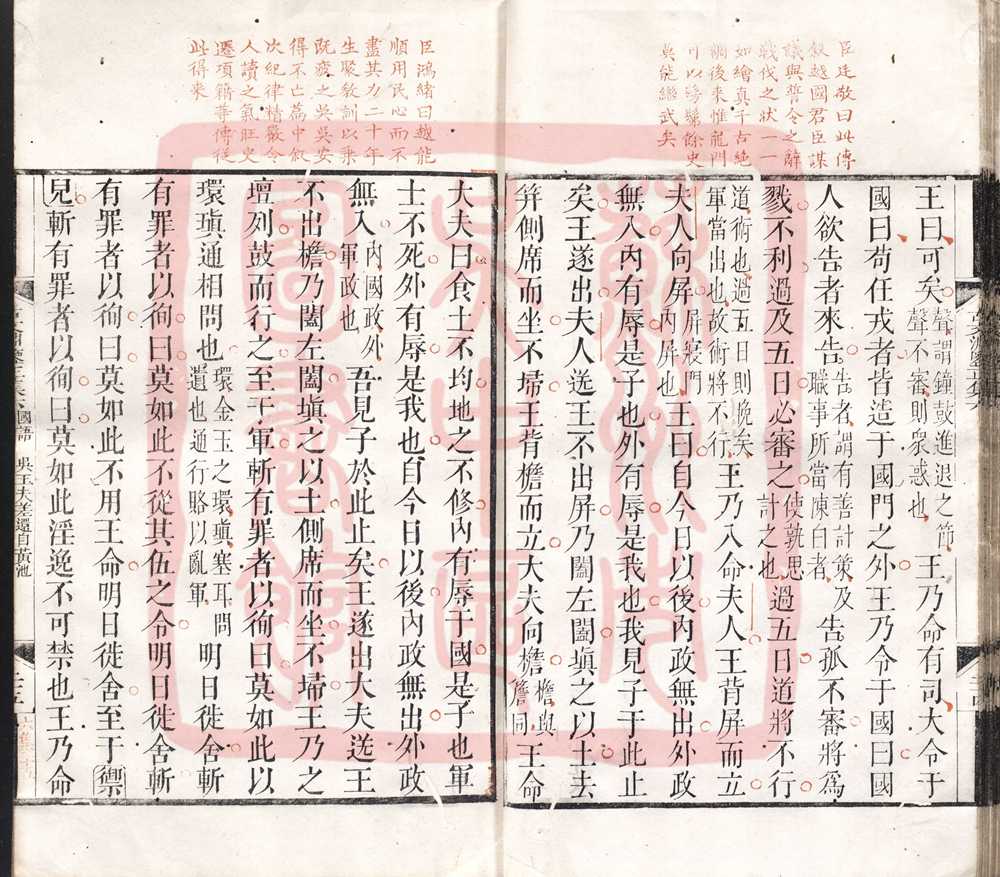 臣廷敬曰此傳
敍越國君臣謀
議與誓令之辭
戰伐之狀一一
如繪真千古絶
調後來惟龍門
可以
眞能繼武矣
王曰可矣聲謂鐘鼓進退之節聲不審則衆惑也王乃命有司大令于
國曰苟任戎者皆造于國門之外王乃令于國曰國
人欲告者來告告者謂有善計策及職事所當陳白者告孤不審將爲
戮不利過及五日必審之使孰思計之也過五日道將不行
道術也過五日則晚矣軍當出也故術將不行王乃入命夫人王背屏而立
夫人向屏屏寢門内屏也王曰自今日以後內政無出外政
無入內有辱是子也外有辱是我也我見子于此止
矣王遂出夫人送王不出屏乃闔左闔塡之以土去
笄側席而坐不埽王背檐而立大夫向檐檐與簷同王命
臣鴻緒曰越能
順用民心而不
盡其力二十年
生聚敎訓以乘
旣疲之吳吳安
得不亡爲中叙
次紀律精嚴令
人讀之氣旺史
遷項籍等傳從
此得來
大夫曰食土不均地之不修內有辱于國是子也軍
士不死外有辱是我也自今日以後內政無出外政
無入內國政外軍政也吾見子於此止矣王遂出大夫送王
不出檐乃闔左闔塡之以土側席而坐不埽王乃之
壇列鼓而行之至于軍斬有罪者以徇曰莫如此以
環瑱通相問也環金玉之環瑱塞耳問遺也通行賂以亂軍明日徙舍斬
有罪者以徇曰莫如此不從其伍之令明日徙舍斬
有罪者以徇曰莫如此不用王命明日徙舍至于禦
兒斬有罪者以徇曰莫如此淫逸不可禁也王乃命
國語 吳王夫差還自黃池